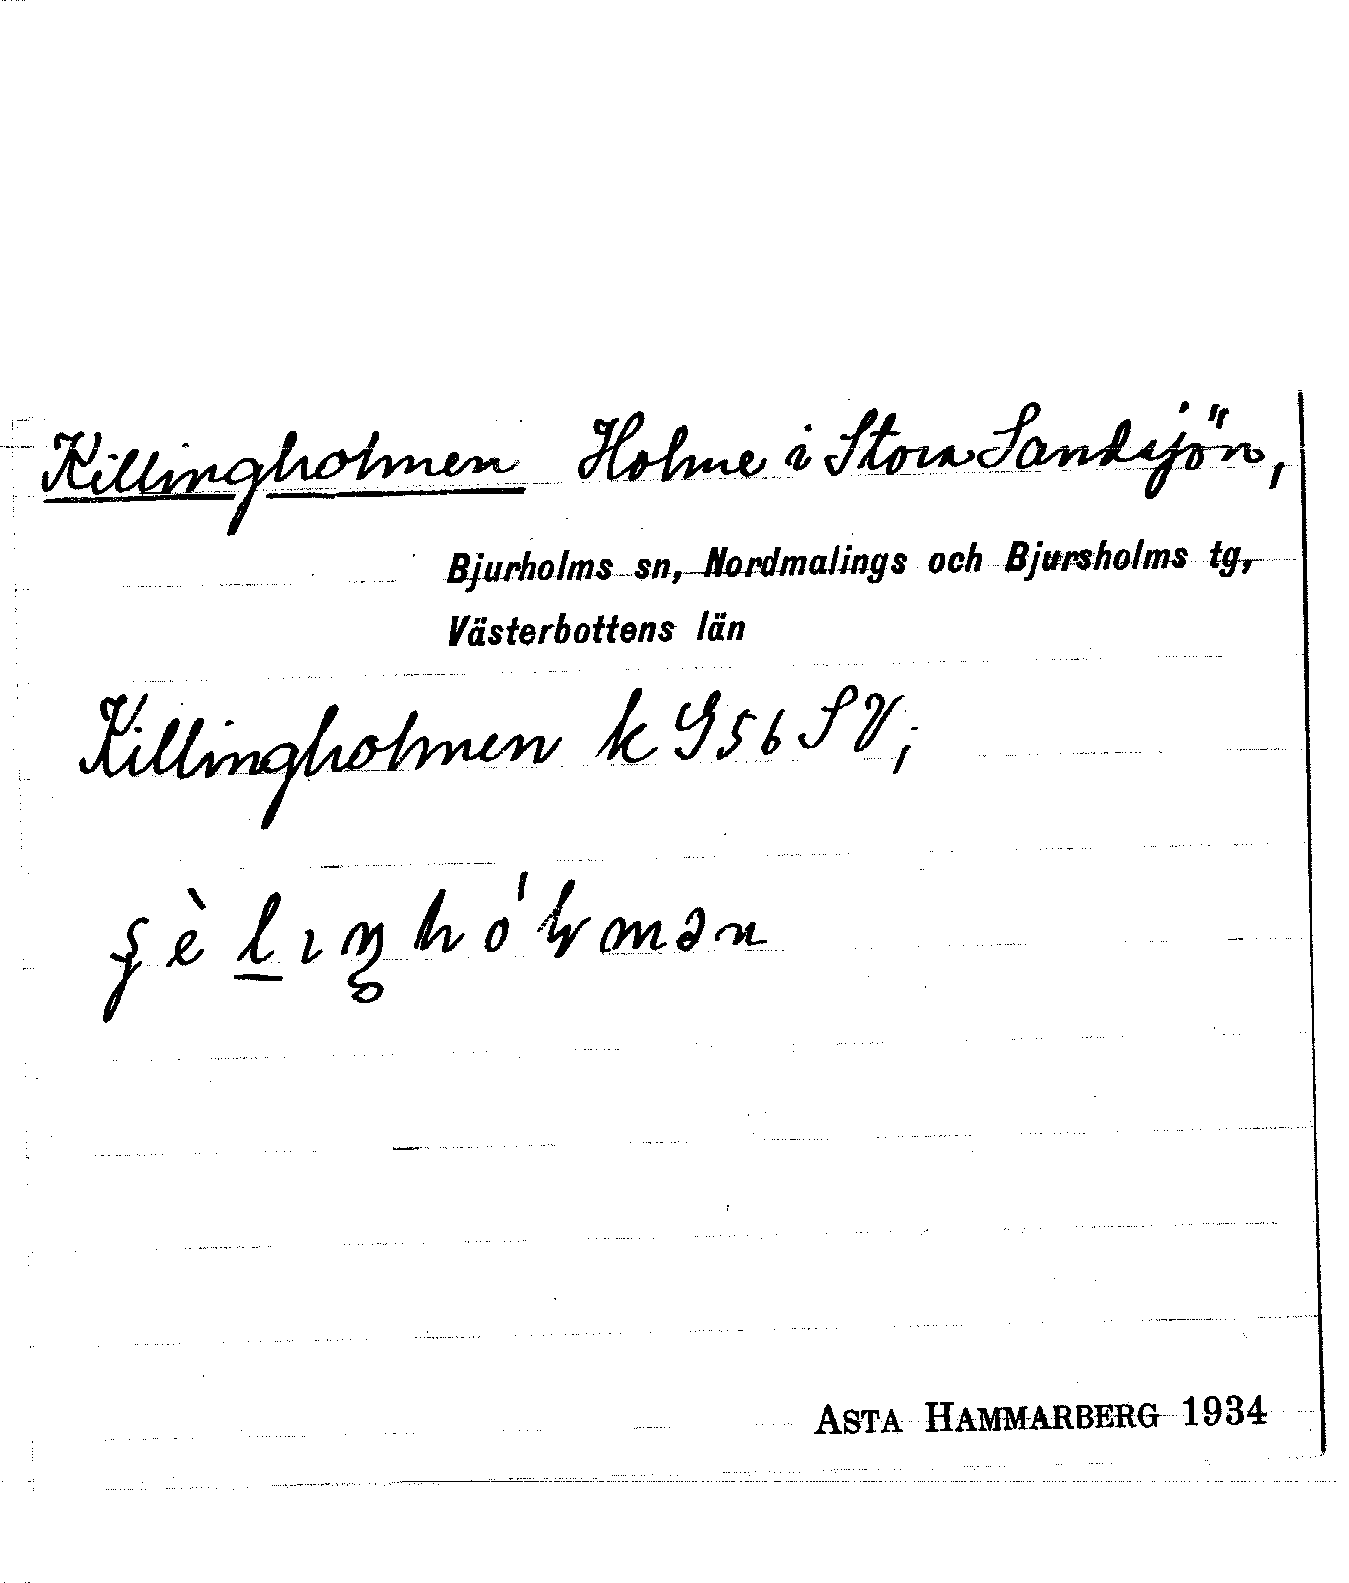 Killingholmen Holme i Stora Sandsjön,
Bjurholms sn, Nordmalings och Bjursholms tg,
Västerbottens län
Killingholmen k G56 SV;
ASTA HAMMARBERG 1934